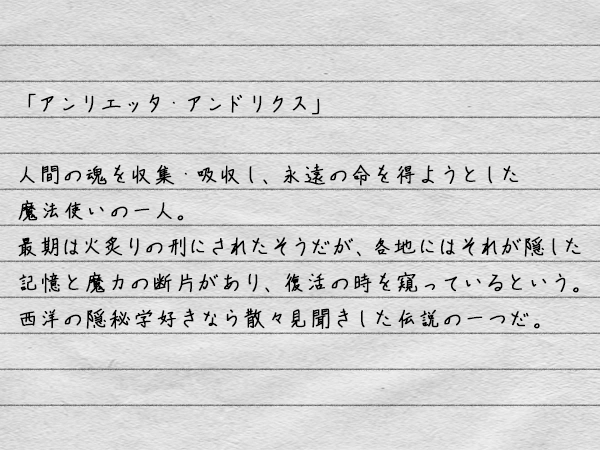 「アンリエッタ・アンドリクス」
人間の魂を収集・吸収し、永遠の命を得ようとした
魔法使いの一人。
最期は火炙りの刑にされたそうだが、各地にはそれが隠した
記憶と魔力の断片があり、復活の時を窺っているという。
西洋の隠秘学好きなら散々見聞きした伝説の一つだ。